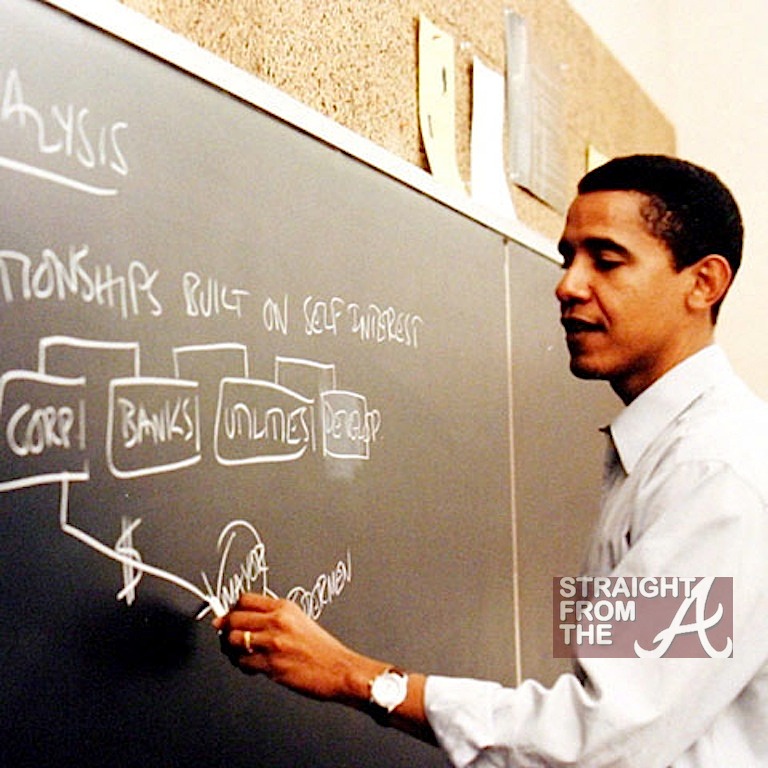 ALYSIS
TIONSHIPS BUILT ON SELF INTEREST
CORP BANKS UTILITIES DEVELOP.
$
MAYOR
DERMEN
STRAIGHT
FROM
THE A